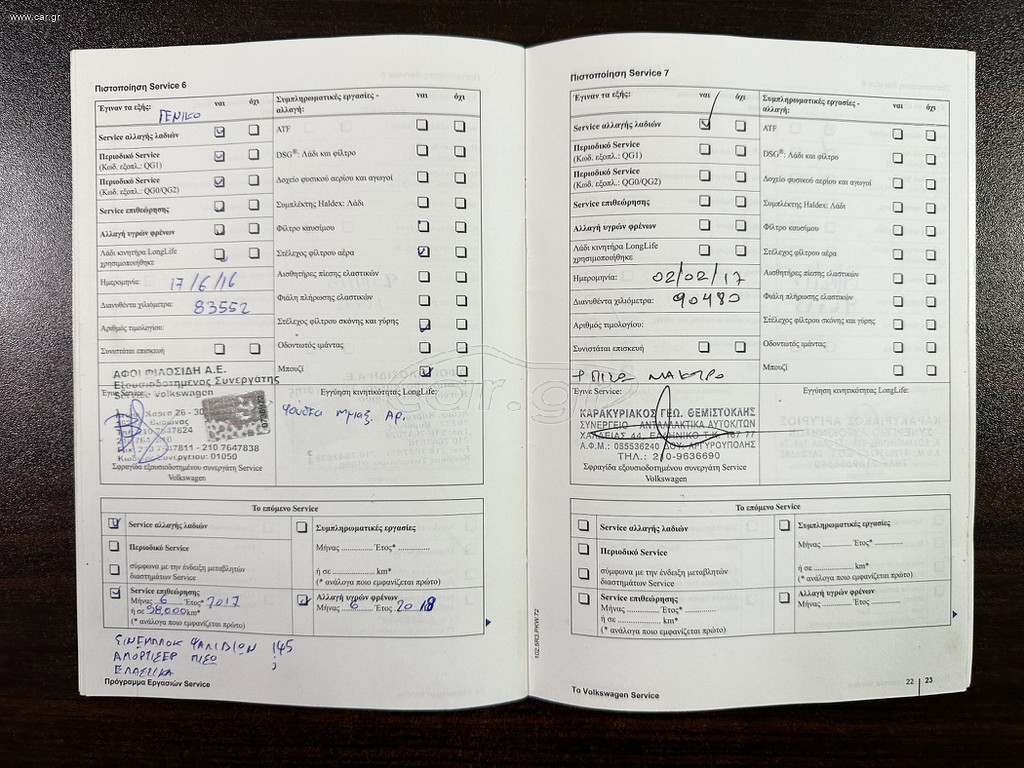 www.car.gr
Πιστοποίηση Service 6
Έγιναν τα εξής: ναι όχι
ΓΕΝΙΚΟ
Service αλλαγής λαδιών
Περιοδικό Service
(Κωδ. εξοπλ.: QG1)
Περιοδικό Service
(Κωδ. εξοπλ.: QG0/QG2)
Service επιθεώρησης
Αλλαγή υγρών φρένων
Λάδι κινητήρα LongLife
χρησιμοποιήθηκε
Ημερομηνία: 17/6/16
Διανυθέντα χιλιόμετρα: 83552
Αριθμός τιμολογίου:
Συνιστάται επισκευή
ΑΦΟΙ ΦΙΛΟΣΙΔΗ Α.Ε.
Εξουσιοδοτημένος Συνεργάτης
Service Volkswagen
Σφραγίδα εξουσιοδοτημένου συνεργάτη Service
Volkswagen
Συμπληρωματικές εργασίες - ναι όχι
αλλαγή:
ATF
DSG®: Λάδι και φίλτρο
Δοχείο φυσικού αερίου και αγωγοί
Συμπλέκτης Haldex: Λάδι
Φίλτρο καυσίμου
Στέλεχος φίλτρου αέρα
Αισθητήρες πίεσης ελαστικών
Φιάλη πλήρωσης ελαστικών
Στέλεχος φίλτρου σκόνης και γύρης
Οδοντωτός ιμάντας
Μπουζί
Εγγύηση κινητικότητας LongLife:
Το επόμενο Service
Service αλλαγής λαδιών
Περιοδικό Service
σύμφωνα με την ένδειξη μεταβλητών
διαστημάτων Service
Service επιθεώρησης
Μήνας 6 Έτος* 2017
ή σε 98.000 km*
(* ανάλογα ποιο εμφανίζεται πρώτο)
Συμπληρωματικές εργασίες
Μήνας ............... Έτος* ...............
ή σε .................... km*
(* ανάλογα ποιο εμφανίζεται πρώτο)
Αλλαγή υγρών φρένων
Μήνας 6 Έτος 2018
ΣΙΝΕΜΠΛΟΚ ΨΑΛΙΔΙΩΝ 145
ΑΜΟΡΤΙΣΕΡ ΠΙΣΩ ;
ΕΛΑΣΤΙΚΑ
Πρόγραμμα Εργασιών Service
Πιστοποίηση Service 7
Έγιναν τα εξής: ναι όχι
Service αλλαγής λαδιών
Περιοδικό Service
(Κωδ. εξοπλ.: QG1)
Περιοδικό Service
(Κωδ. εξοπλ.: QG0/QG2)
Service επιθεώρησης
Αλλαγή υγρών φρένων
Λάδι κινητήρα LongLife
χρησιμοποιήθηκε
Ημερομηνία: 02/02/17
Διανυθέντα χιλιόμετρα: 90480
Αριθμός τιμολογίου:
Συνιστάται επισκευή
Έγινε Service:
ΚΑΡΑΚΥΡΙΑΚΟΣ ΓΕΩ. ΘΕΜΙΣΤΟΚΛΗΣ
ΣΥΝΕΡΓΕΙΟ - ΑΝΤΑΛΛΑΚΤΙΚΑ ΑΥΤΟΚ/ΤΩΝ
ΤΗΛ.: 210-9636690
Σφραγίδα εξουσιοδοτημένου συνεργάτη Service
Volkswagen
Συμπληρωματικές εργασίες - ναι όχι
αλλαγή:
ATF
DSG®: Λάδι και φίλτρο
Δοχείο φυσικού αερίου και αγωγοί
Συμπλέκτης Haldex: Λάδι
Φίλτρο καυσίμου
Στέλεχος φίλτρου αέρα
Αισθητήρες πίεσης ελαστικών
Φιάλη πλήρωσης ελαστικών
Στέλεχος φίλτρου σκόνης και γύρης
Οδοντωτός ιμάντας
Μπουζί
Εγγύηση κινητικότητας LongLife:
Το επόμενο Service
Service αλλαγής λαδιών
Περιοδικό Service
σύμφωνα με την ένδειξη μεταβλητών
διαστημάτων Service
Service επιθεώρησης
Μήνας ............... Έτος* ...............
ή σε .................... km*
(* ανάλογα ποιο εμφανίζεται πρώτο)
Συμπληρωματικές εργασίες
Μήνας ............... Έτος* ...............
ή σε .................... km*
(* ανάλογα ποιο εμφανίζεται πρώτο)
Αλλαγή υγρών φρένων
Μήνας ............... Έτος ...............
102.5R3.PKW.72
Το Volkswagen Service
22 | 23